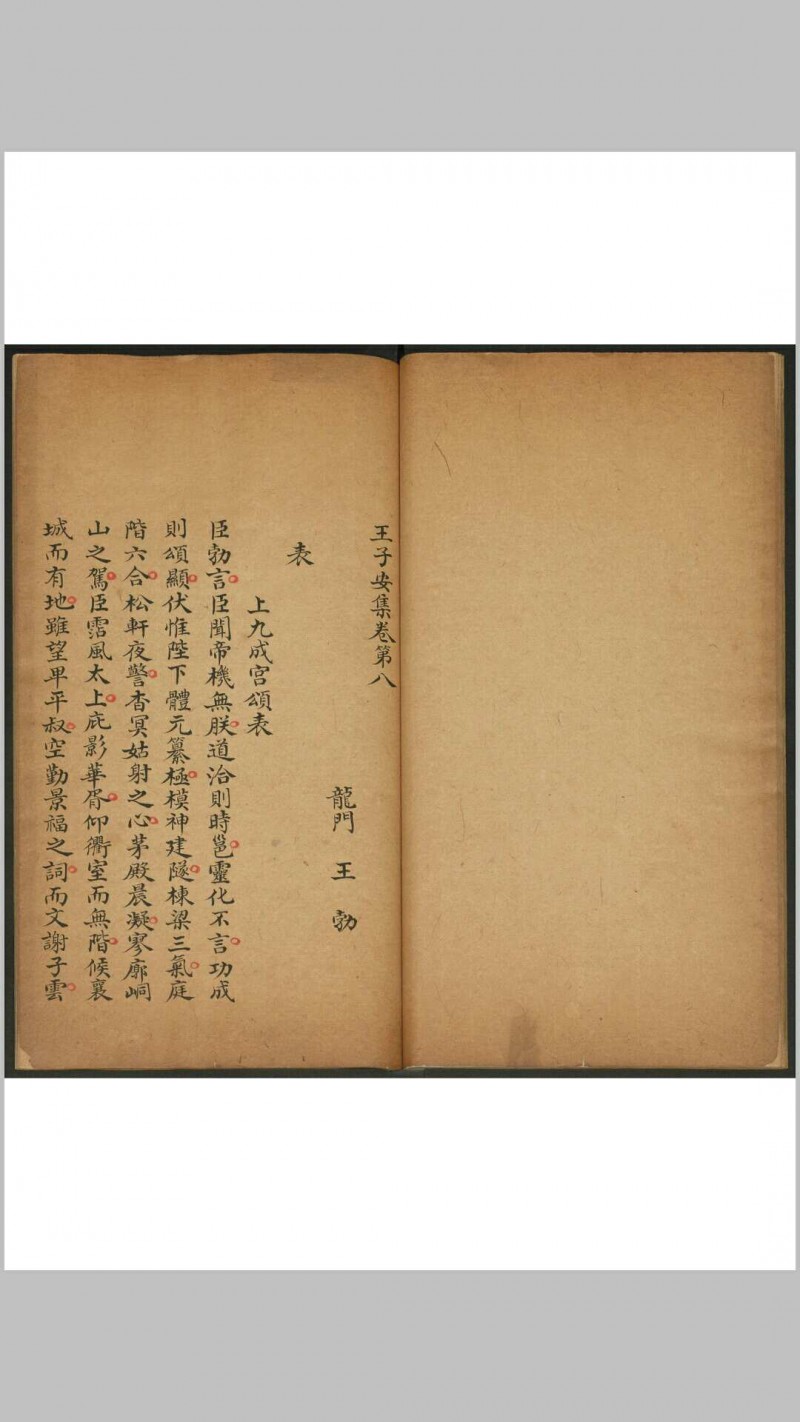 王子安集卷第八
龍門 王勃
表
上九成宮頌表
臣勃言臣聞帝機無朕道洽則時邕靈化不言功成
則頌顯伏惟陛下體元纂極模神建隧棟梁三氣庭
階六合松軒夜警杳冥姑射之心茅殿晨凝寥廓峒
山之駕臣霑風太上庇影華胥仰衢室而無階候襄
城而有地雖望卑平叔空勤景福之詞而文謝子雲